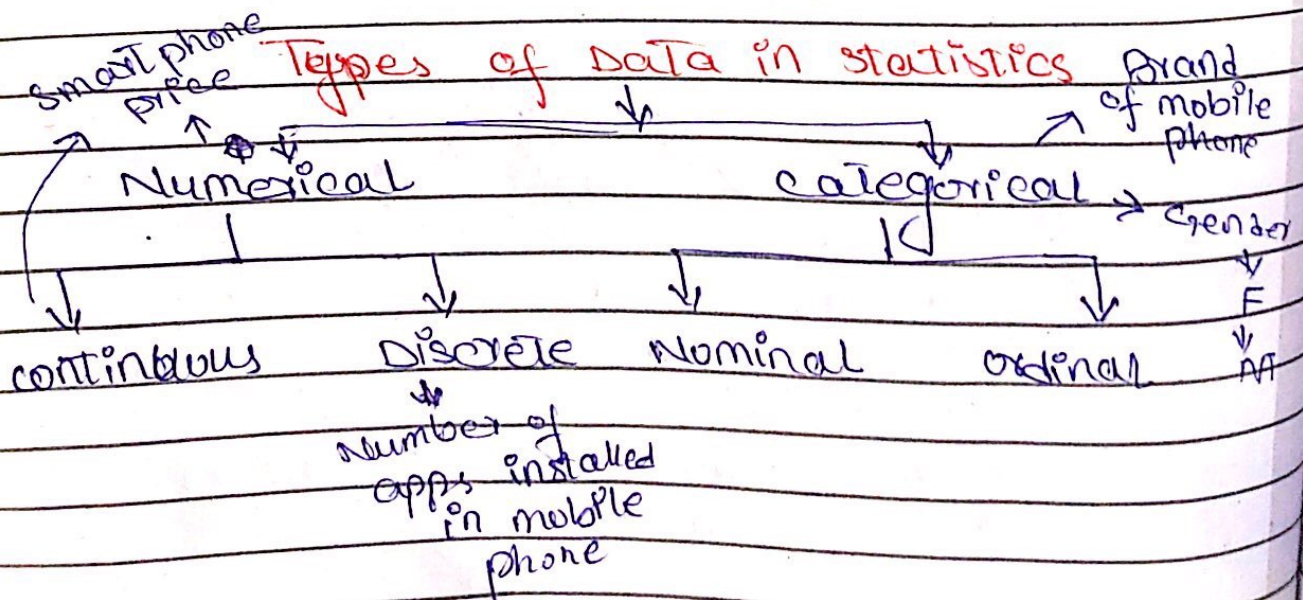 Types of Data in statistics
smart phone
price
Brand
of mobile
phone
Numerical
categorical
Gender
F
M
continuous
Discrete
Nominal
ordinal
Number of
apps installed
in mobile
phone